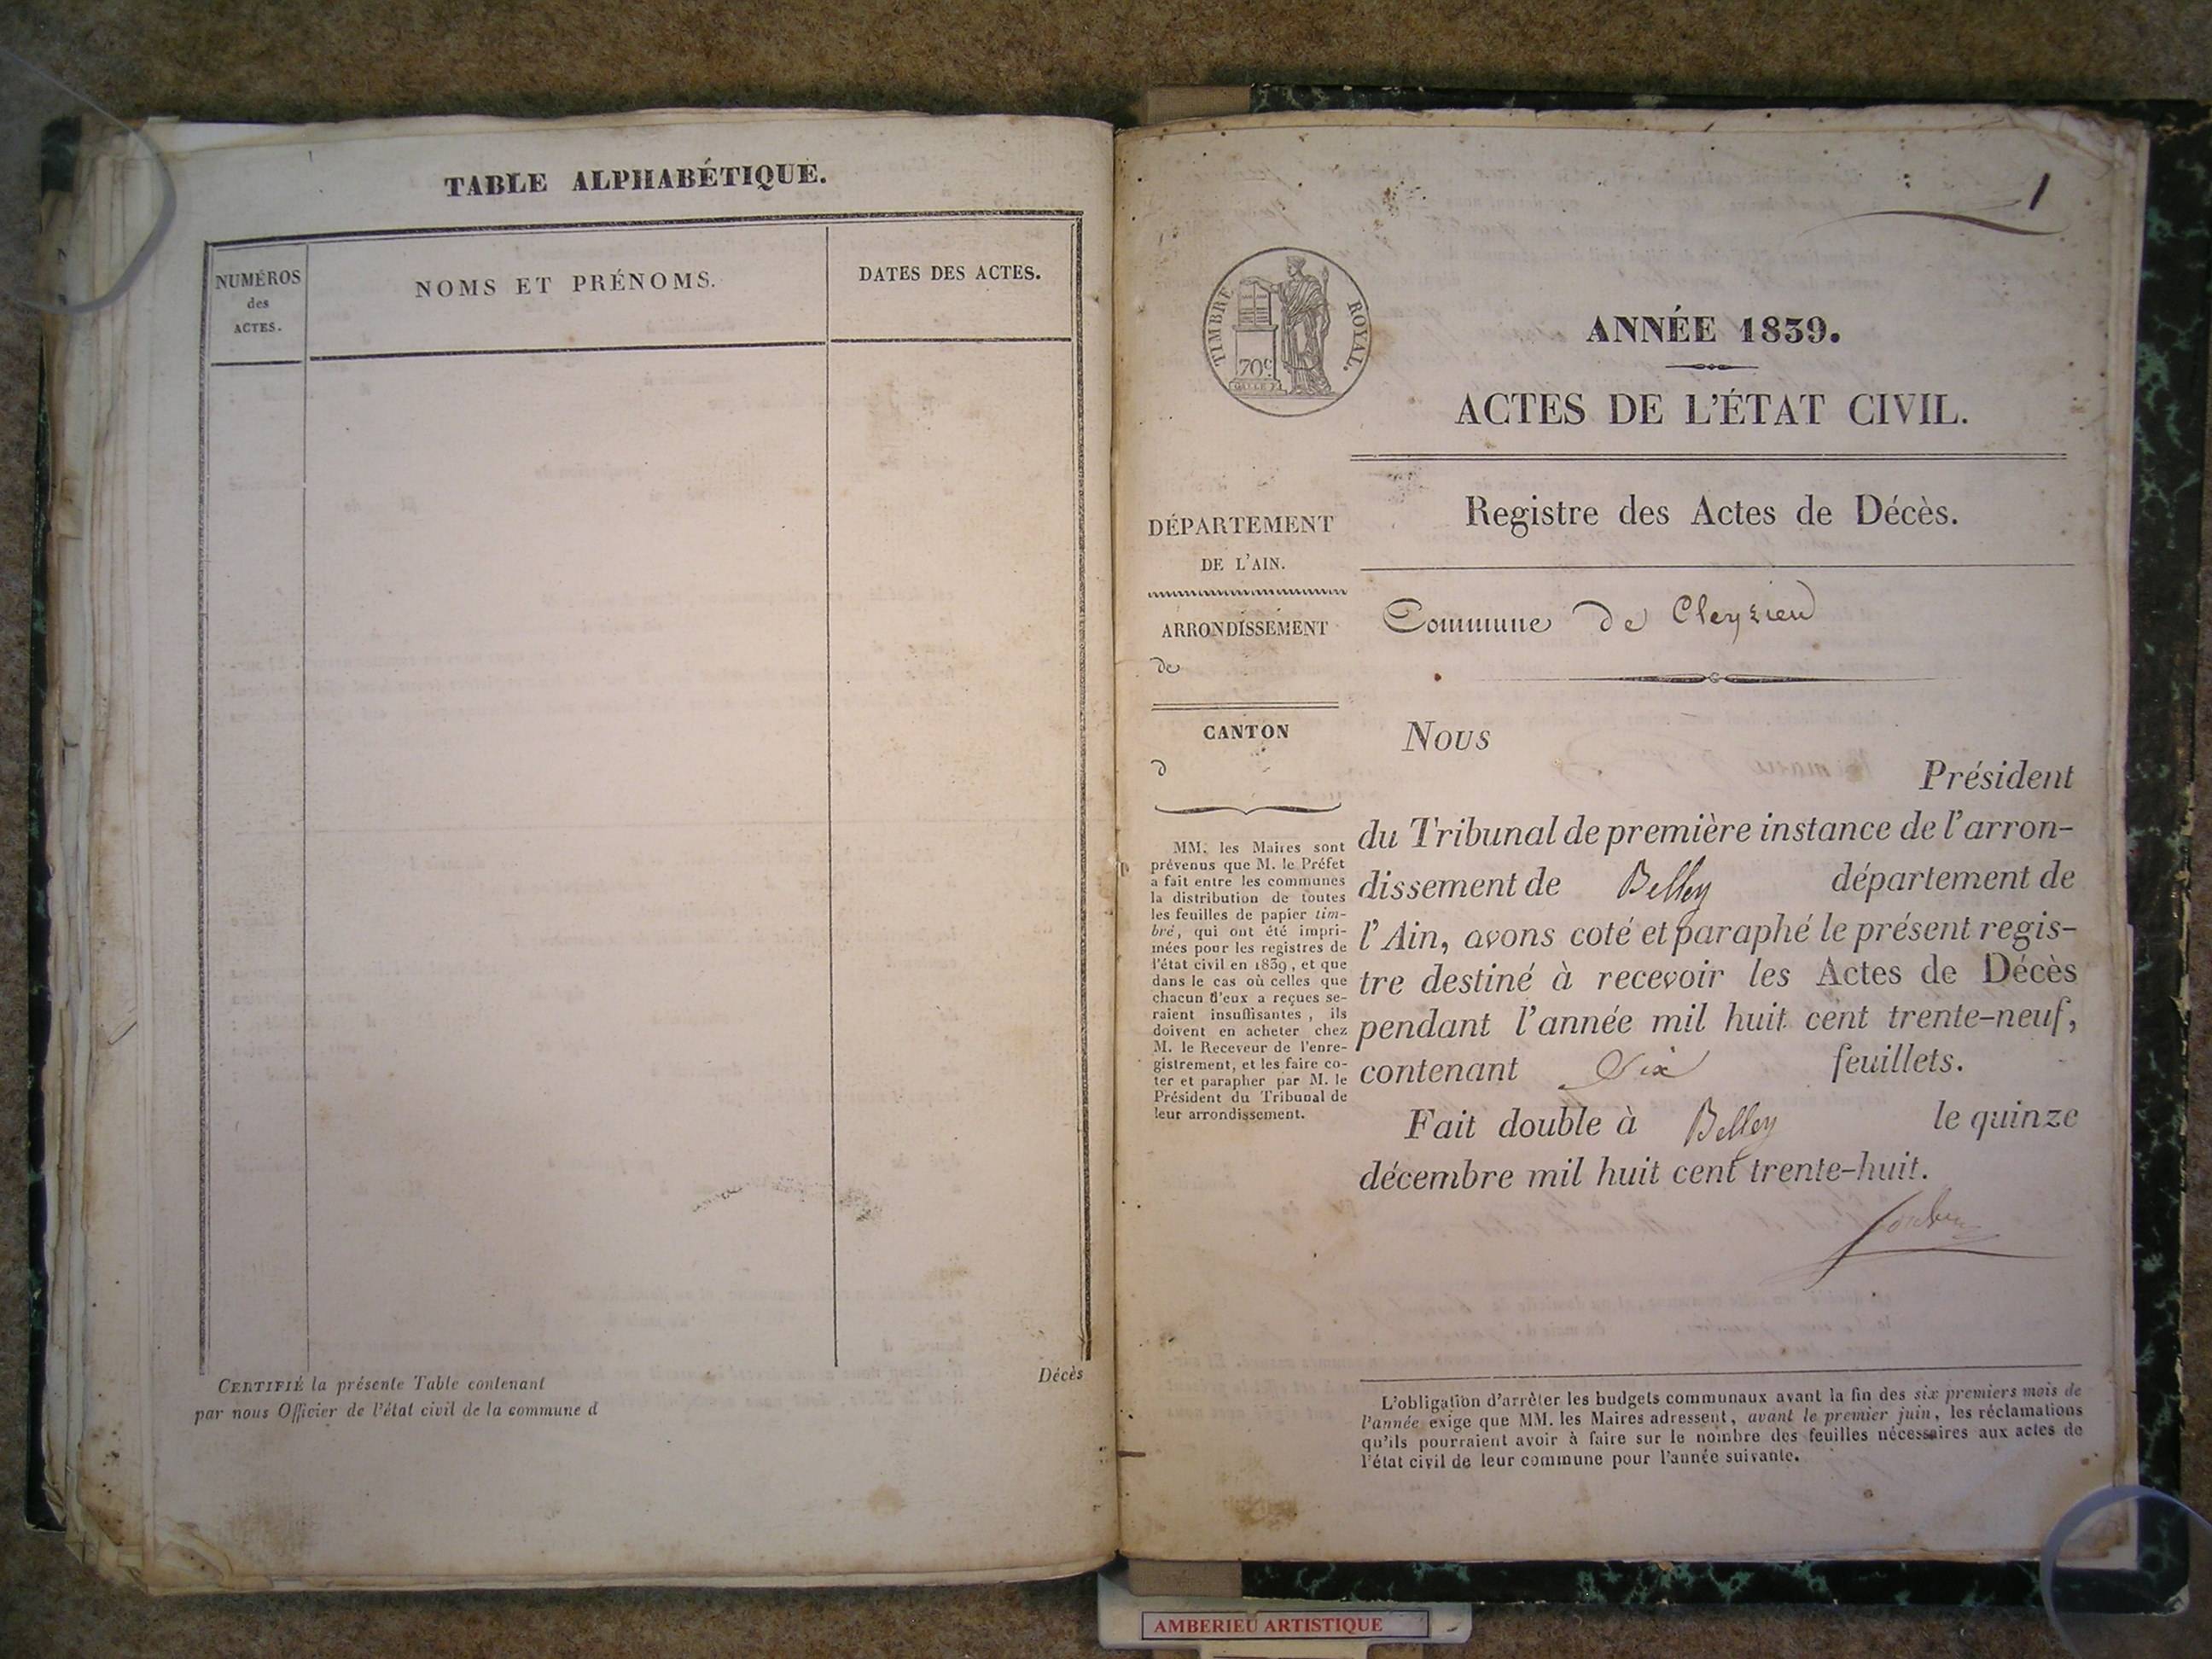 TABLE ALPHABÉTIQUE.
NUMÉROS
des
ACTES.
NOMS ET PRÉNOMS.
DATES DES ACTES.
Décès
CERTIFIÉ la présente Table contenant
par nous Officier de l'état civil de la commune d
1
TIMBRE ROYAL.
70c
ANNÉE 1839.
ACTES DE L'ÉTAT CIVIL.
Registre des Actes de Décès.
DÉPARTEMENT
DE L'AIN.
ARRONDISSEMENT
de
CANTON
d
MM. les Maires sont
prévenus que M. le Préfet
a fait entre les communes
la distribution de toutes
les feuilles de papier tim-
bré, qui ont été impri-
mées pour les registres de
l'état civil en 1839, et que
dans le cas où celles que
chacun d'eux a reçues se-
raient insuffisantes, ils
doivent en acheter chez
M. le Receveur de l'enre-
gistrement, et les faire co-
ter et parapher par M. le
Président du Tribunal de
leur arrondissement.
Commune de Cleyzieu
Nous
Président
du Tribunal de première instance de l'arron-
dissement de Belley département de
l'Ain, avons coté et paraphé le présent regis-
tre destiné à recevoir les Actes de Décès
pendant l'année mil huit cent trente-neuf,
contenant Six feuillets.
Fait double à Belley le quinze
décembre mil huit cent trente-huit.
L'obligation d'arrêter les budgets communaux avant la fin des six premiers mois de
l'année exige que MM. les Maires adressent, avant le premier juin, les réclamations
qu'ils pourraient avoir à faire sur le nombre des feuilles nécessaires aux actes de
l'état civil de leur commune pour l'année suivante.
AMBERIEU ARTISTIQUE